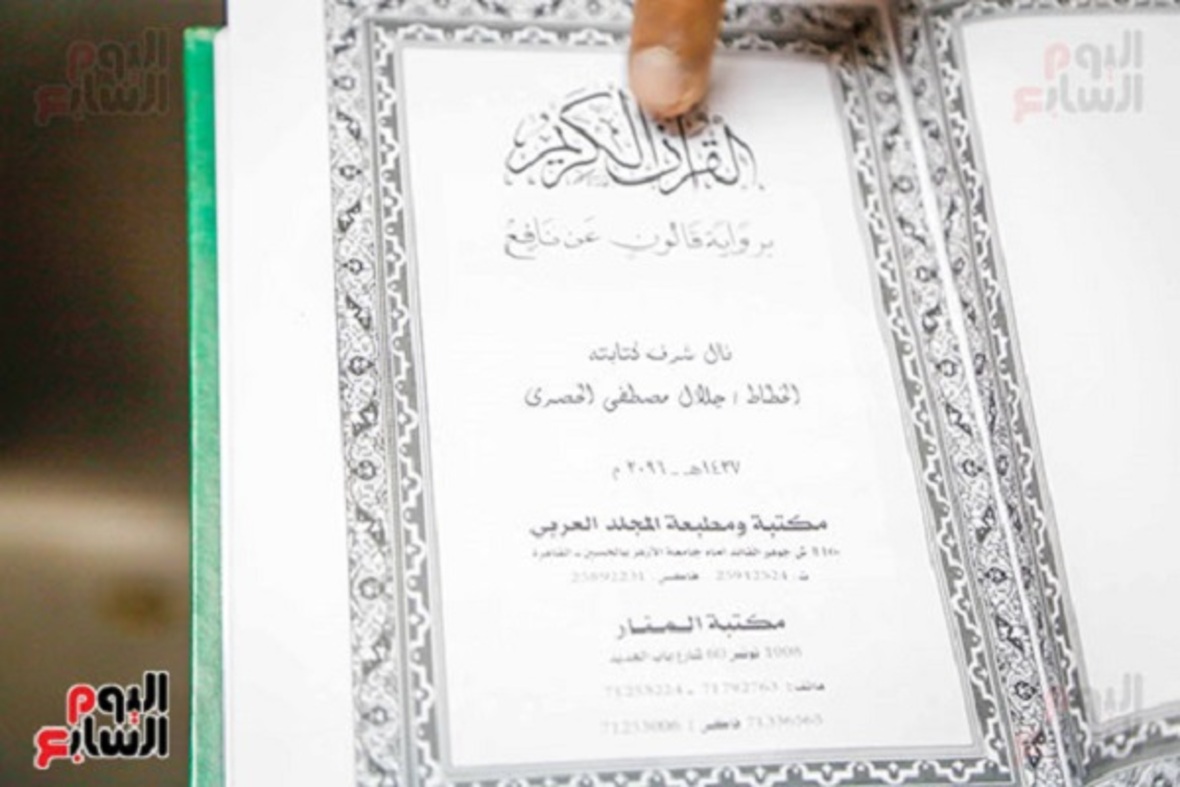 القرآن الكريم
برواية قالون عن نافع
نال شرف كتابته
الخطاط / جلال مصطفى الحصرى
١٤٣٧هـ - ٢٠٩٦ م
مكتبة ومطبعة المجلد العربي
116 ش جوهر القائد امام جامعة الأزهر بالحسين - القاهرة
ت: 25912524 فاكس: 25892231
مكتبة المنار
تونس 60 شارع باب الجديد
هاتف: 71792763 - 71253224
71336563 فاكس: 71253006
اليوم السابع
اليوم السابع
اليوم السابع
اليوم السابع